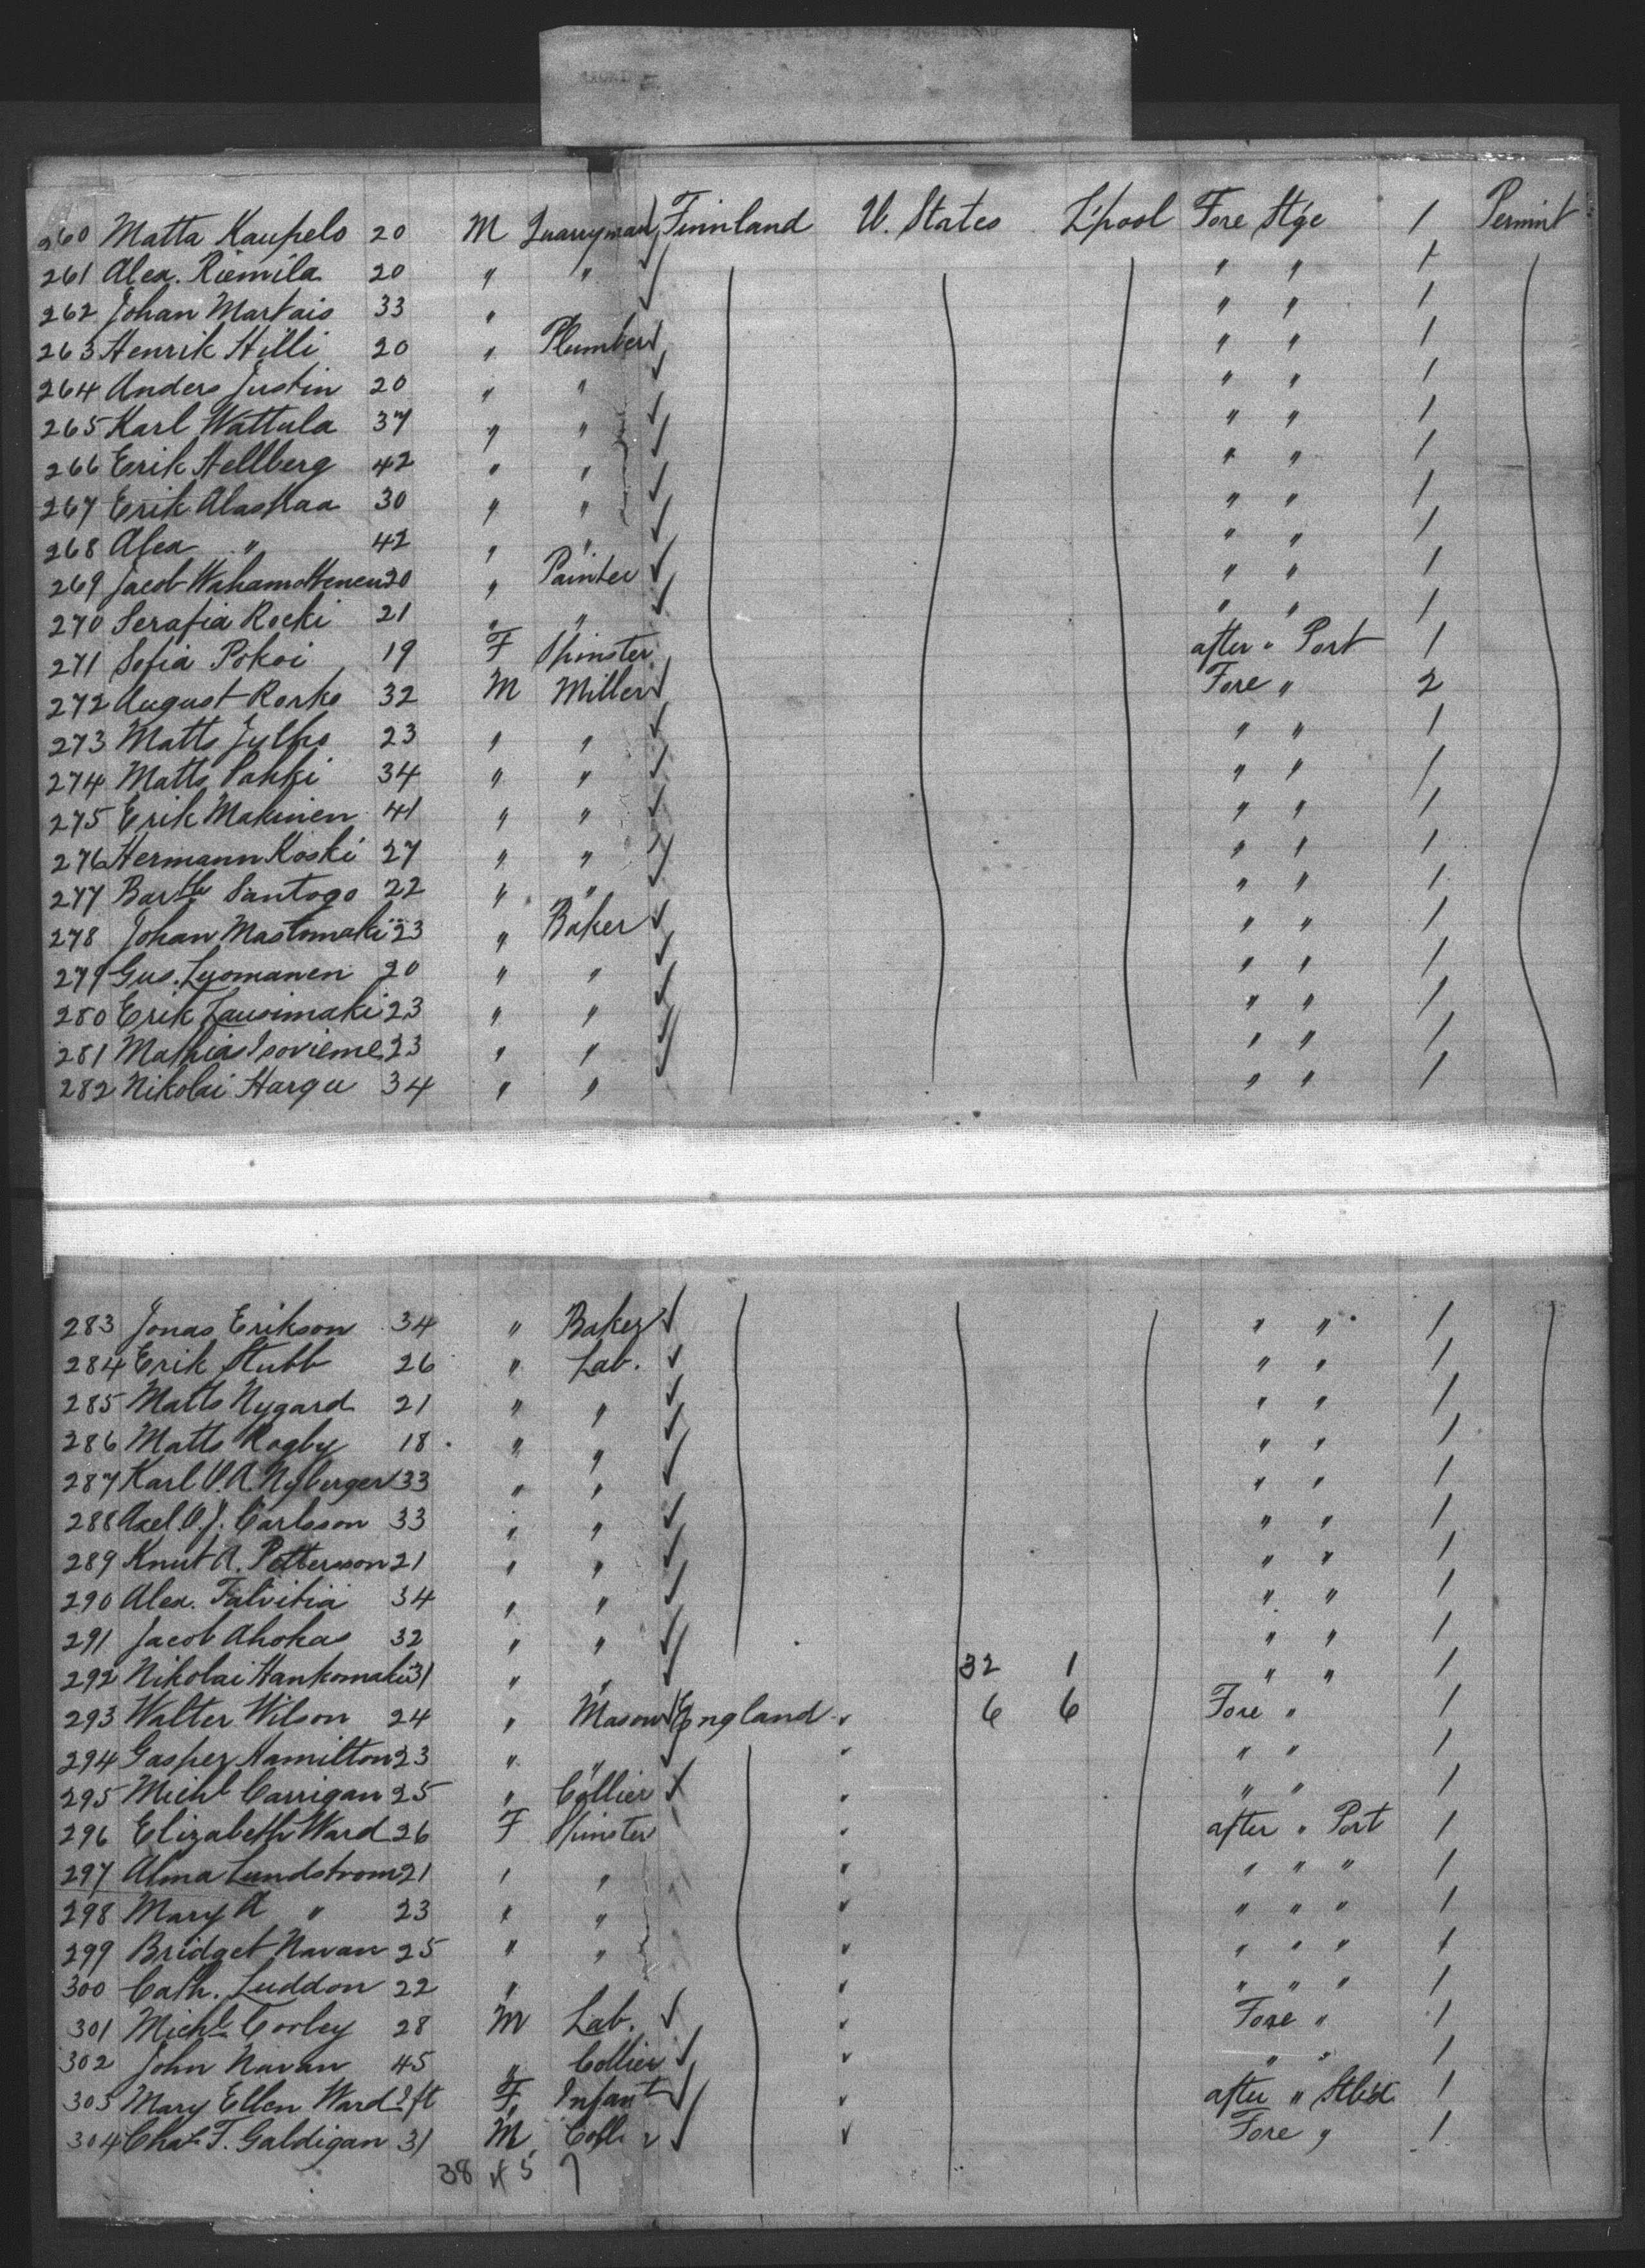 260 Matta Kaupelo 20 M Quarryman Finnland U. States L'pool Fore Stge 1 Permint
261 Alex. Riemila 20 " " " " 1
262 Johan Martais 33 " " " 1
263 Henrik Hilli 20 " Plumber " " 1
264 Anders Justin 20 " " " " 1
265 Karl Wattula 37 " " " " 1
266 Erik Hellberg 42 " " " " 1
267 Erik Alaskaa 30 " " " " 1
268 Alex " 42 " " " " 1
269 Jacob 20 " Painter " " 1
270 Serafia Rocki 21 " " " " 1
271 Sofia Pokoi 19 F Spinster after " Port 1
272 August Rorko 32 M Miller Fore " 2
273 Matts Jylho 23 " " " " 1
274 Matts Pahki 34 " " " " 1
275 Erik Makinen 41 " " " " 1
276 Hermann Koski 27 " " " " 1
277 Barth Santogo 22 " " " " 1
278 Johan Mastomaki 23 " Baker " " 1
279 Gus. Lyomanen 20 " " " " 1
280 Erik Lausimaki 23 " " " " 1
281 Mathias 23 " " " " 1
282 Nikolai Hargu 34 " " " " 1
283 Jonas Erikson 34 " Baker " " 1
284 Erik Stubb 26 " Lab. " " 1
285 Matts Nygard 21 " " " " 1
286 Matts Rogby 18 " " " " 1
287 Karl V. A. Nyberger 33 " " " " 1
288 Axel. V. J. Carlsson 33 " " " " 1
289 Knut A. Pettersson 21 " " " " 1
290 Alex. Falvitia 34 " " " " 1
291 Jacob Ahokas 32 " " " " 1
292 Nikolai Hankomaki 31 " " 32 1 " " 1
293 Walter Wilson 24 " Mason England 6 6 Fore " 1
294 Gasper Hamilton 23 " " " " 1
295 Michl Carrigan 25 " Collier " " 1
296 Elizabeth Ward 26 F Spinster after " Port 1
297 Alma Lundstrom 21 " " " " " 1
298 Mary A " 23 " " " " " 1
299 Bridget Navan 25 " " " " " 1
300 Cath. Luddon 22 " " " " 1
301 Michl Corley 28 M Lab. Fore " 1
302 John Navan 45 " Collier " " 1
303 Mary Ellen Ward Ift F Infant after " Stb'd 1
304 Chas F. Galdigan 31 M Collier Fore " 1
38 5 7